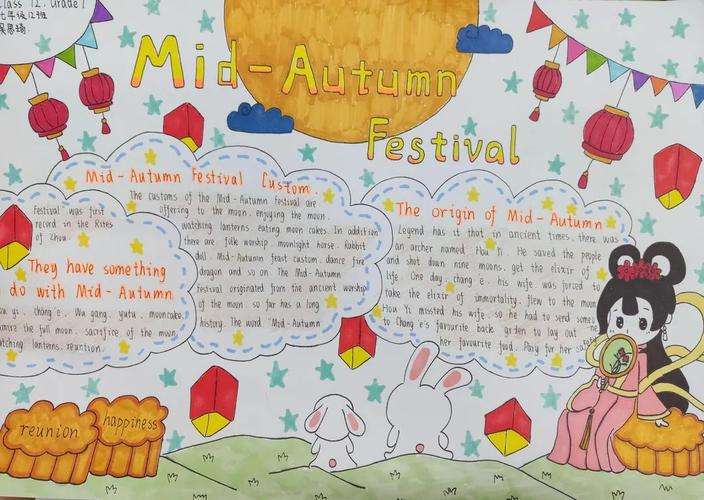 Class 12, Grade 1
七年级12班
Mid-Autumn
Festival
Mid-Autumn Festival Custom
The customs of the Mid-Autumn Festival are
offering to the moon. enjoying the moon.
watching lanterns. eating moon cakes. In addition
there are folk worship. moonlight horse. Rabbit
doll. Mid-Autumn feast custom. dance fire
dragon and so on. The Mid-Autumn
festival originated from the ancient worship
of the moon. so far has a long
history. The word Mid-Autumn
Festival was first
record in the Rites
of Zhou.
They have something
do with Mid-Autumn
Hou yi. chang'e. Wu gang. yutu. mooncake.
admire the full moon. sacrifice of the moon
watching lanterns. reuntion
The origin of Mid-Autumn
Legend has it that in ancient times, there was
an archer named Hou Yi. He saved the people
and shot down nine moons. get the elixir of
life. One day, chang'e, his wife was forced to
take the elixir of immortality. flew to the moon
Hou Yi missted his wife, so he had to send some
to Chang'e's favourite back garden to lay out
her favourite food. Pary for her
reunion
happiness